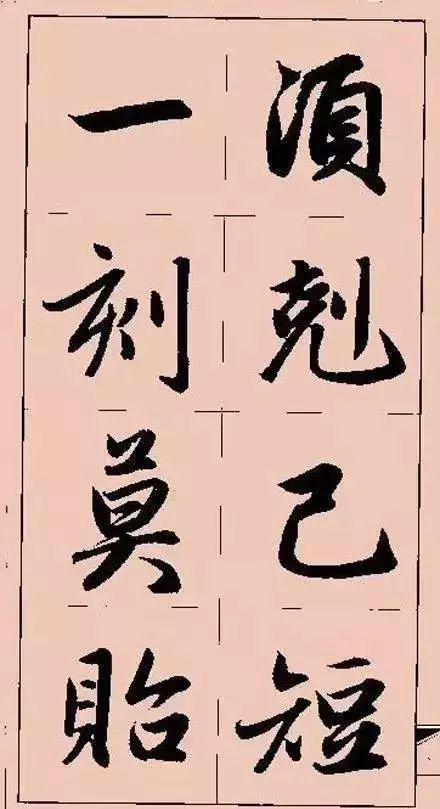 須剋己短
一刻莫貽